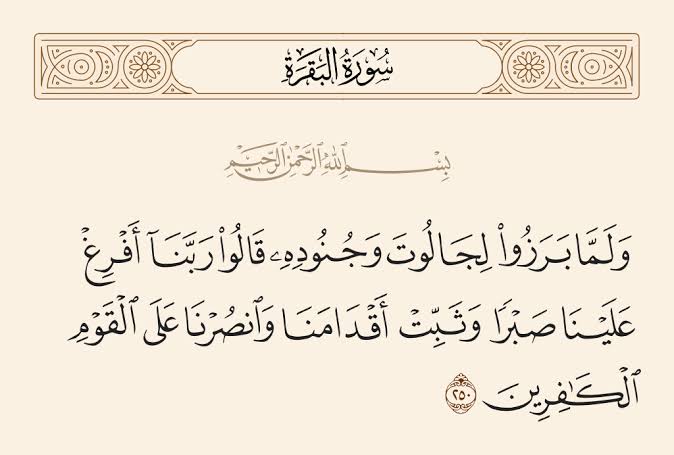 سُورَةُ البَقَرَةِ
بِسْمِ اللَّهِ الرَّحْمَٰنِ الرَّحِيمِ
وَلَمَّا بَرَزُواْ لِجَالُوتَ وَجُنُودِهِۦ قَالُواْ رَبَّنَآ أَفۡرِغۡ
عَلَيۡنَا صَبۡرٗا وَثَبِّتۡ أَقۡدَامَنَا وَٱنصُرۡنَا عَلَى ٱلۡقَوۡمِ
ٱلۡكَٰفِرِينَ ٢٥٠